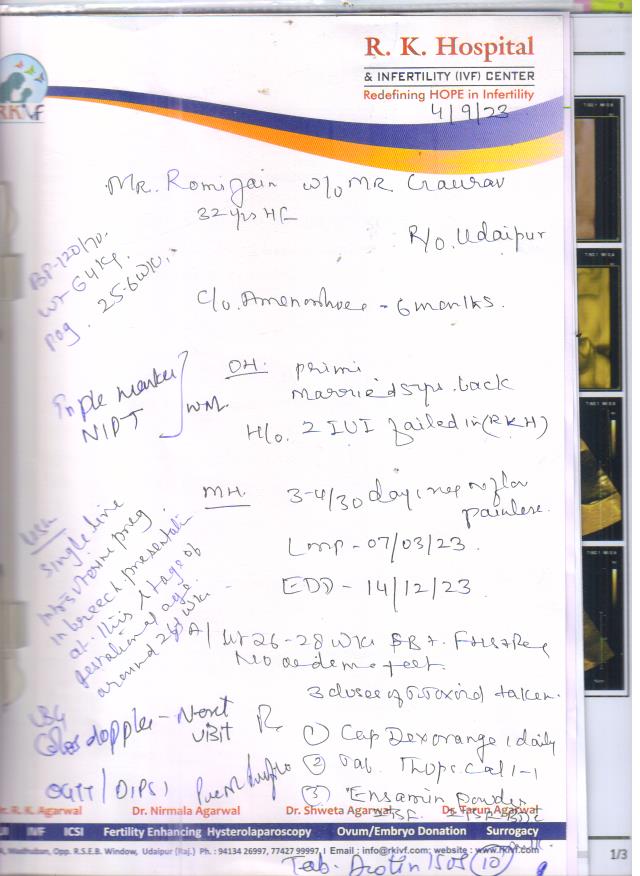 RKIVF
R. K. Hospital
& INFERTILITY (IVF) CENTER
Redefining HOPE in Infertility
4/9/23
MR. Romi Jain w/o MR Gaurav
32 yrs HF
R/o. Udaipur
BP-120/70.
wt 64 kg.
pog. 25-6 wk.
C/o. Amenorrhoea - 6 months.
Triple marker
NIPT
OH: primi
Married 5 yrs. back
H/o. 2 IUI failed in (RKH)
MH. 3-4/30 days, reg flow
painless.
LMP - 07/03/23.
EDD - 14/12/23
USG
Single live
Intrauterine preg.
in breech presentation
at this stage of
gestational age.
around wk
P/A/ ut 26-28 wks FHS+Reg
No oedema feet.
3 doses of T. Toxoid taken.
USG
Color doppler - Next visit
OGTT/DIPSI
R
1 Cap Dexorange 1 daily
2 Tab. cal 1-1
3 Ensamin Powder
Dr. R. K. Agarwal Dr. Nirmala Agarwal Dr. Shweta Agarwal Dr. Tarun Agarwal
IUI IVF ICSI Fertility Enhancing Hysterolaparoscopy Ovum/Embryo Donation Surrogacy
A, Madhuban, Opp. R.S.E.B. Window, Udaipur (Raj.) Ph. : 94134 26997, 77427 99997 | Email : info@rkivf.com; website : www.rkivf.com
1/3
Tab. (10)